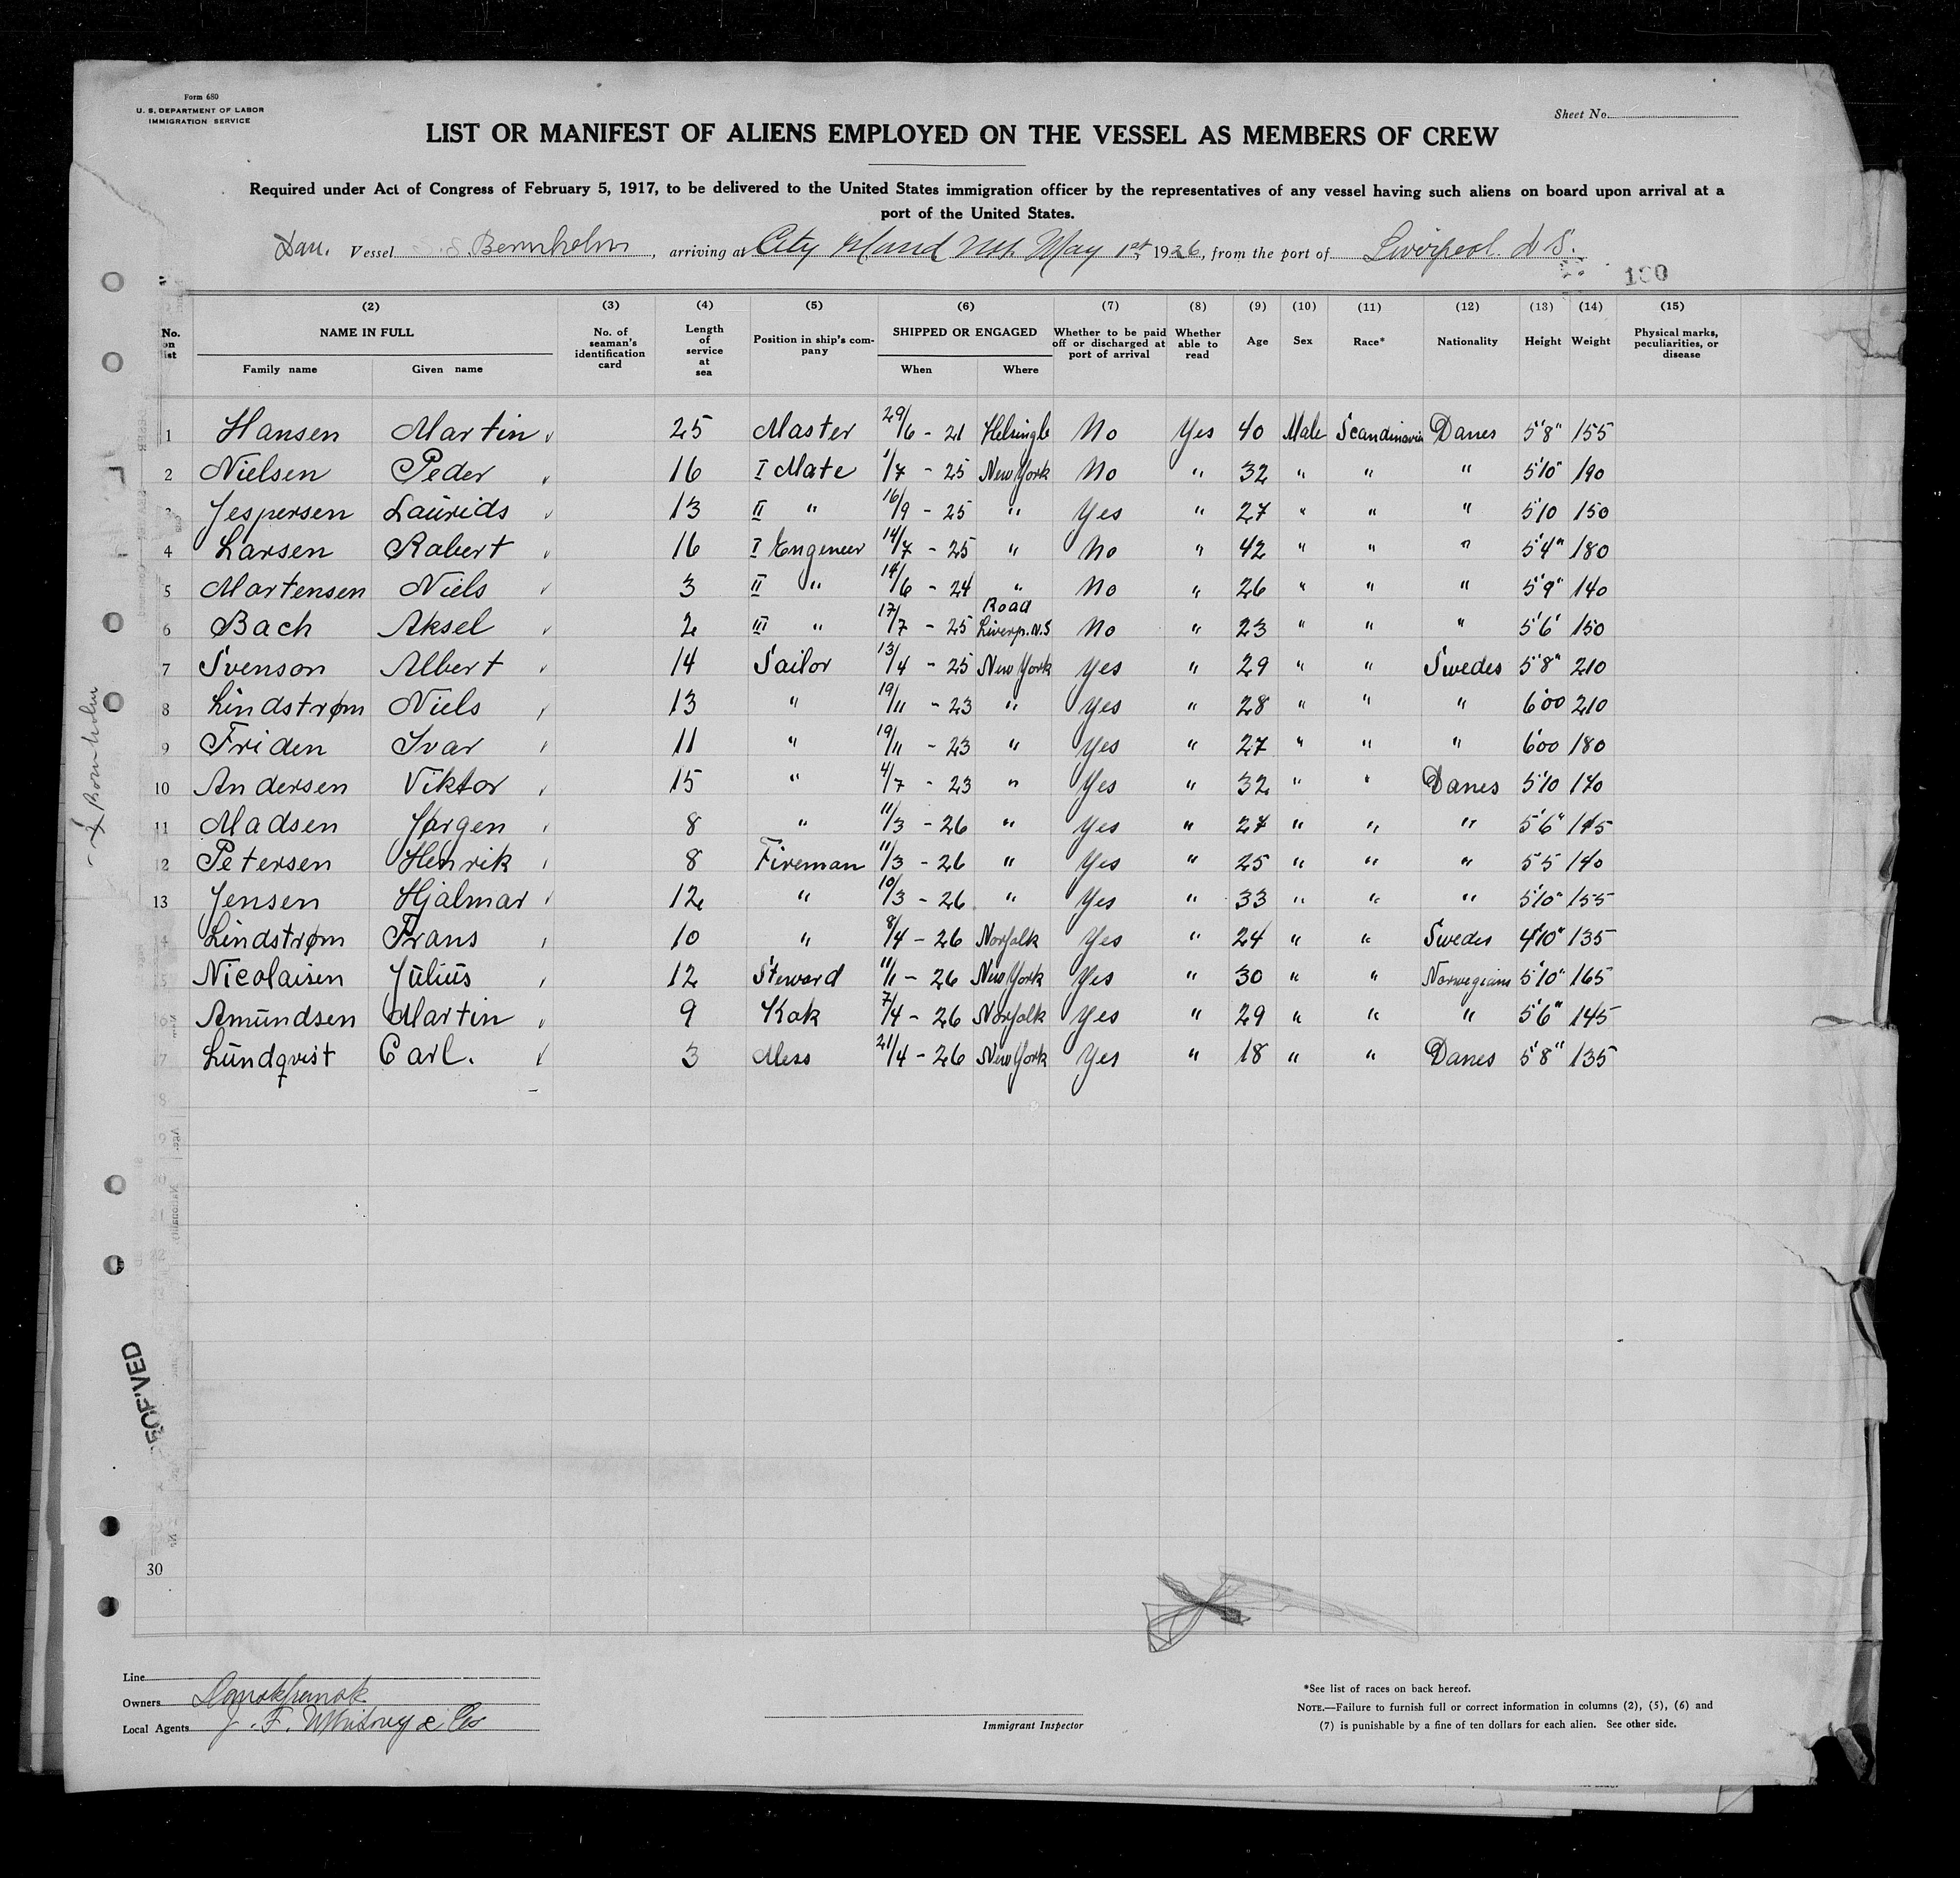 Form 680
U. S. DEPARTMENT OF LABOR
IMMIGRATION SERVICE
Sheet No.
LIST OR MANIFEST OF ALIENS EMPLOYED ON THE VESSEL AS MEMBERS OF CREW
Required under Act of Congress of February 5, 1917, to be delivered to the United States immigration officer by the representatives of any vessel having such aliens on board upon arrival at a
port of the United States.
Dan. Vessel S.S. Bernholm, arriving at City Island May 1st 1926, from the port of Liverpool
100
(2) (3) (4) (5) (6) (7) (8) (9) (10) (11) (12) (13) (14) (15)
No. on list NAME IN FULL Family name Given name No. of seaman's identification card Length of service at sea Position in ship's company SHIPPED OR ENGAGED When Where Whether to be paid off or discharged at port of arrival Whether able to read Age Sex Race* Nationality Height Weight Physical marks, peculiarities, or disease
1 Hansen Martin 25 Master 29/6 - 21 No Yes 40 Male Scandinavia Danes 5'8" 155
2 Nielsen Peder 16 I Mate 1/7 - 25 New York No " 32 " " " 5'10" 190
3 Jespersen Laurids 13 II " 16/9 - 25 " Yes " 27 " " " 5'10 150
4 Larsen Robert 16 I Engeneer 14/7 - 25 " No " 42 " " " 5'4" 180
5 Martensen Niels 3 II " 14/6 - 24 " No " 26 " " " 5'9" 140
6 Bach Aksel 2 III " 17/7 - 25 Road Liverp. N.S No " 23 " " " 5'6' 150
7 Svenson Albert 14 Sailor 13/4 - 25 New York Yes " 29 " " Swedes 5'8" 210
8 Lindstrøm Niels 13 " 19/11 - 23 " Yes " 28 " " " 6'00 210
9 Friden Ivar 11 " 19/11 - 23 " Yes " 27 " " " 6'00 180
10 Andersen Viktor 15 " 4/7 - 23 " Yes " 32 " " Danes 5'10 170
11 Madsen Jørgen 8 " 11/3 - 26 " Yes " 27 " " " 5'6" 145
12 Petersen Henrik 8 Fireman 11/3 - 26 " Yes " 25 " " " 5'5 140
13 Jensen Hjalmar 12 " 10/3 - 26 " Yes " 33 " " " 5'10" 155
14 Lindstrøm Frans 10 " 8/4 - 26 Norfolk Yes " 24 " " Swedes 4'10" 135
15 Nicolaisen Julius 12 Steward 11/1 - 26 New York Yes " 30 " " Norwegians 5'10" 165
16 Amundsen Martin 9 Kok 7/4 - 26 Norfolk Yes " 29 " " " 5'6" 145
17 Lundqvist Carl. 3 Mess 21/4 - 26 New York Yes " 18 " " Danes 5'8" 135
30
Bornholm
Line
Owners
Local Agents J. F. Whitney & Co
Immigrant Inspector
*See list of races on back hereof.
NOTE.—Failure to furnish full or correct information in columns (2), (5), (6) and
(7) is punishable by a fine of ten dollars for each alien. See other side.